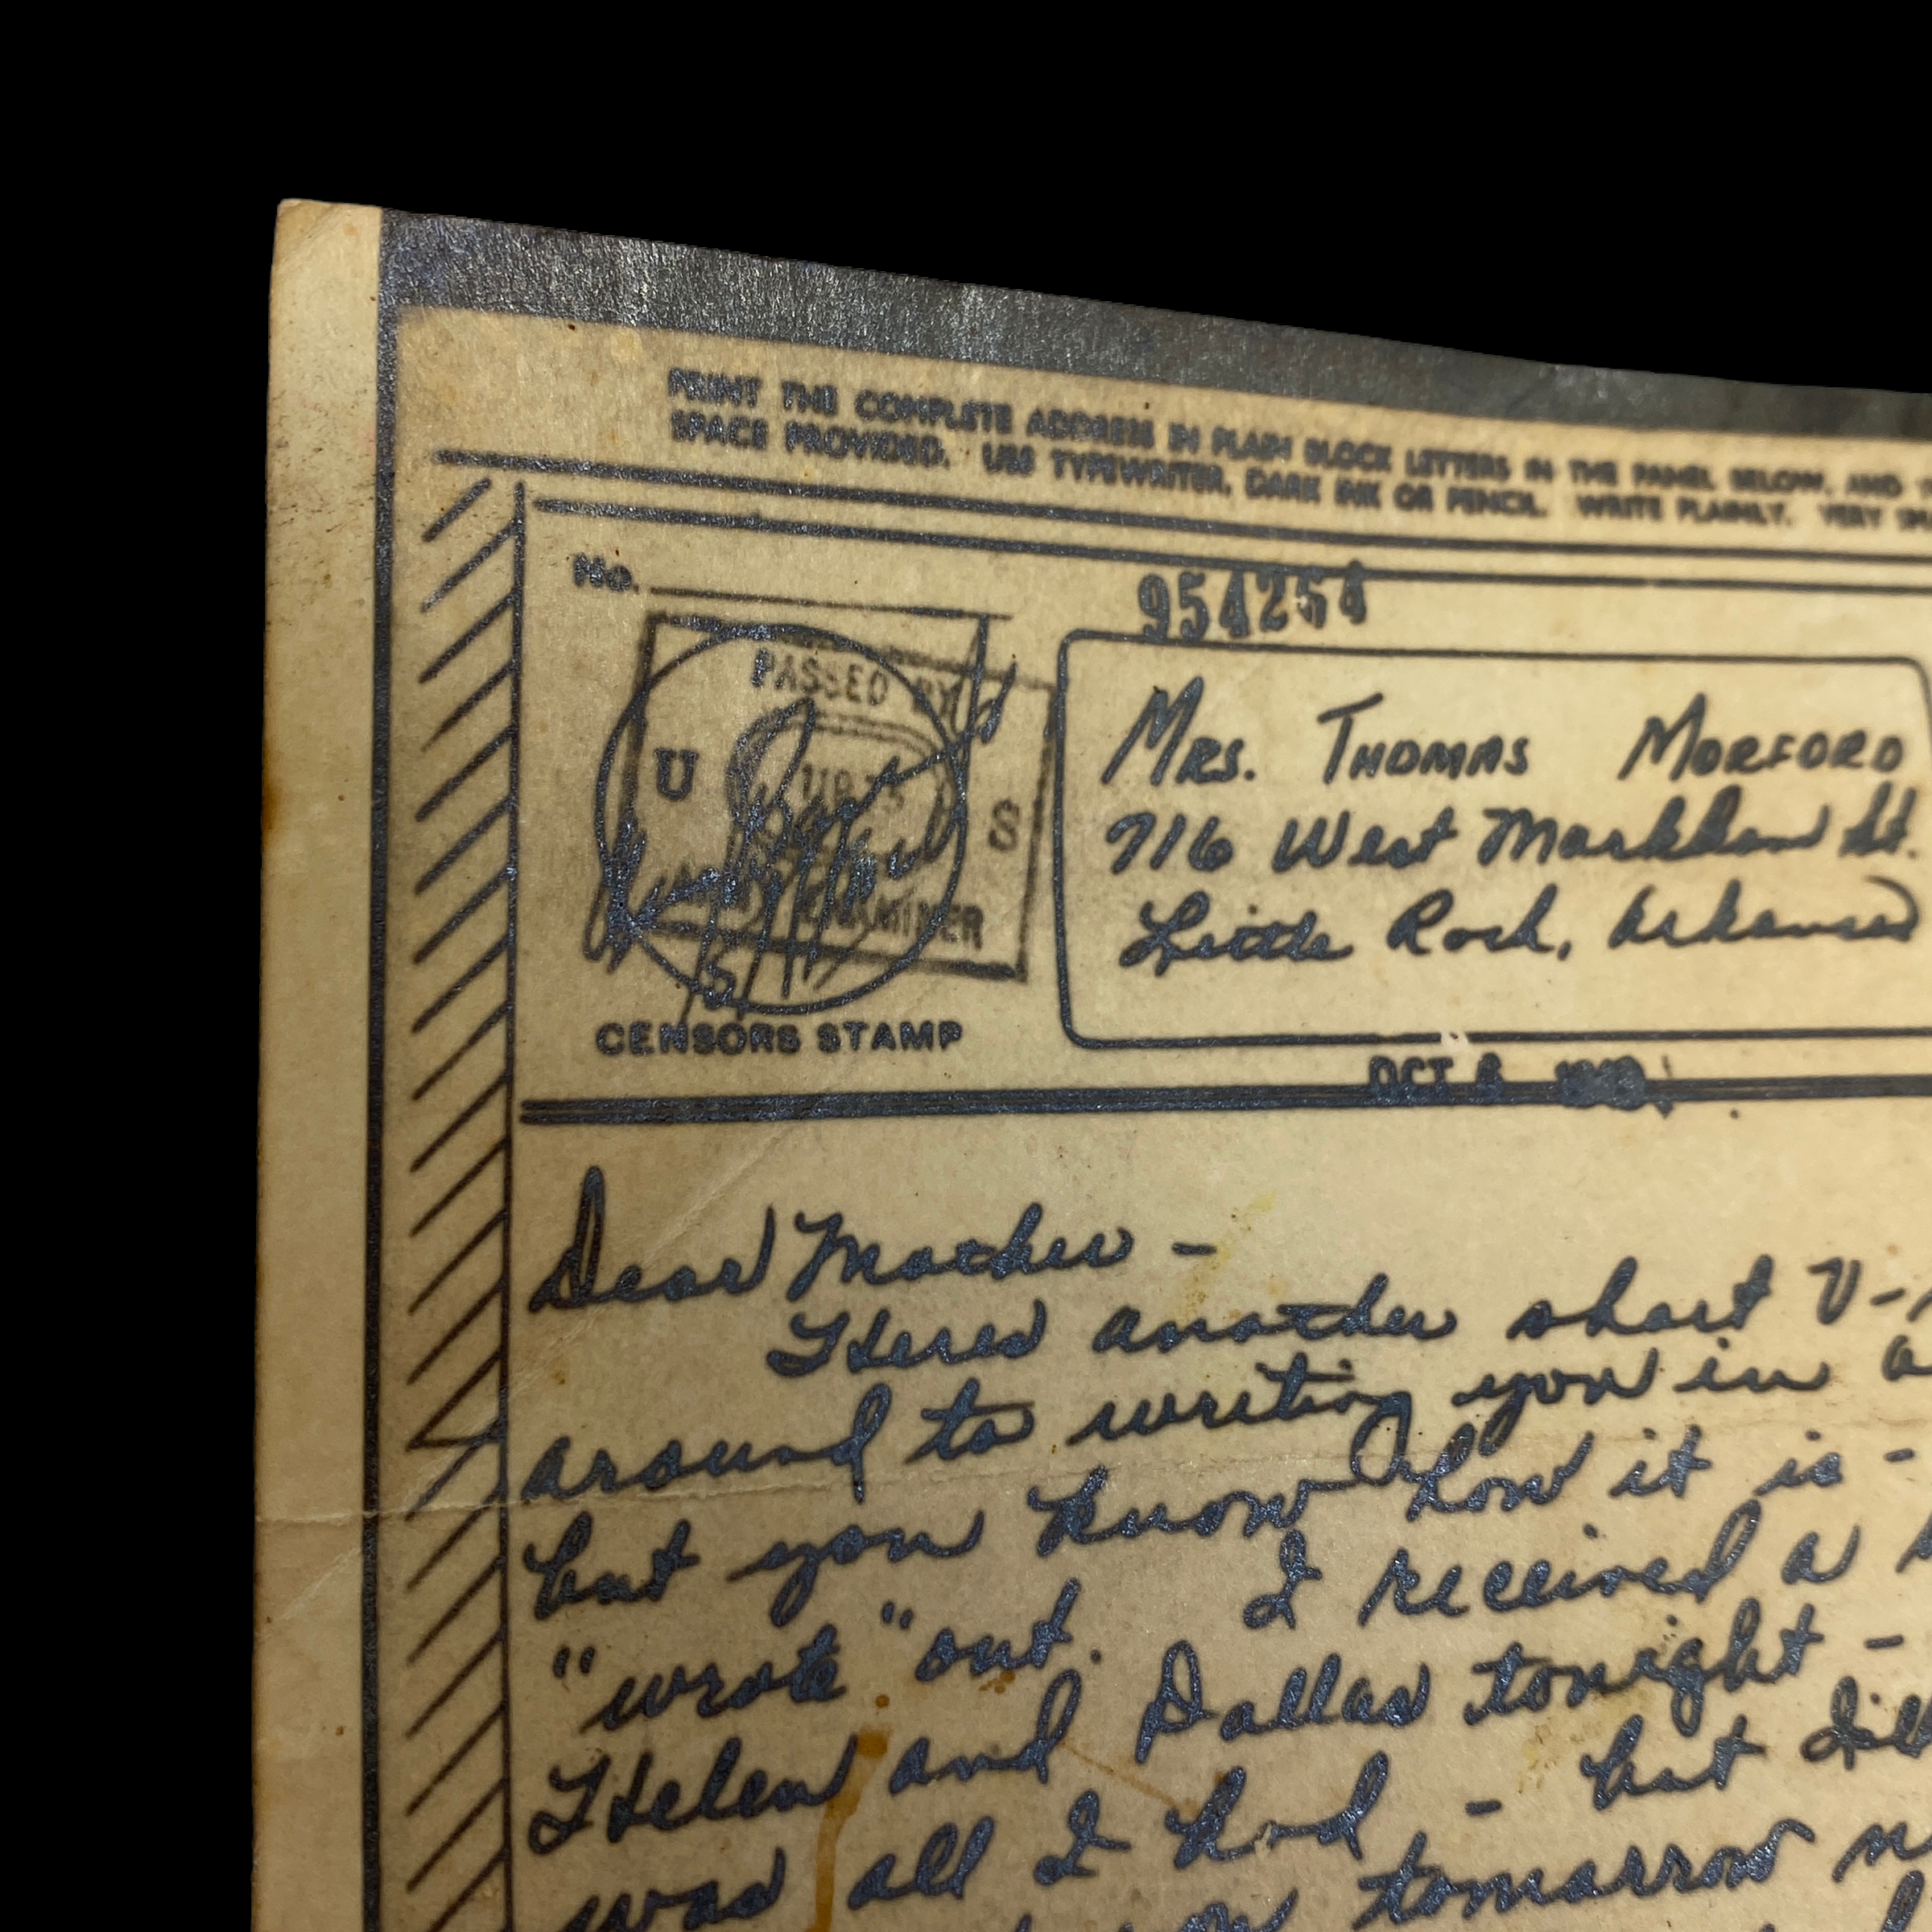 PRINT THE COMPLETE ADDRESS IN PLAIN BLOCK LETTERS IN THE PANEL BELOW, AND
SPACE PROVIDED. USE TYPEWRITER, DARK INK OR PENCIL. WRITE PLAINLY. VERY
No.
954254
PASSED BY
U S
EXAMINER
CENSORS STAMP
MRS. THOMAS MORFORD
716 West Markham St.
Little Rock, Arkansas
OCT
Dear Mother -
Heres another short V-
around to writing you in
but you know how it is -
"wrote" out. I received a
Helen and Dallas tonight -
was all I had - but I'll
tomorrow